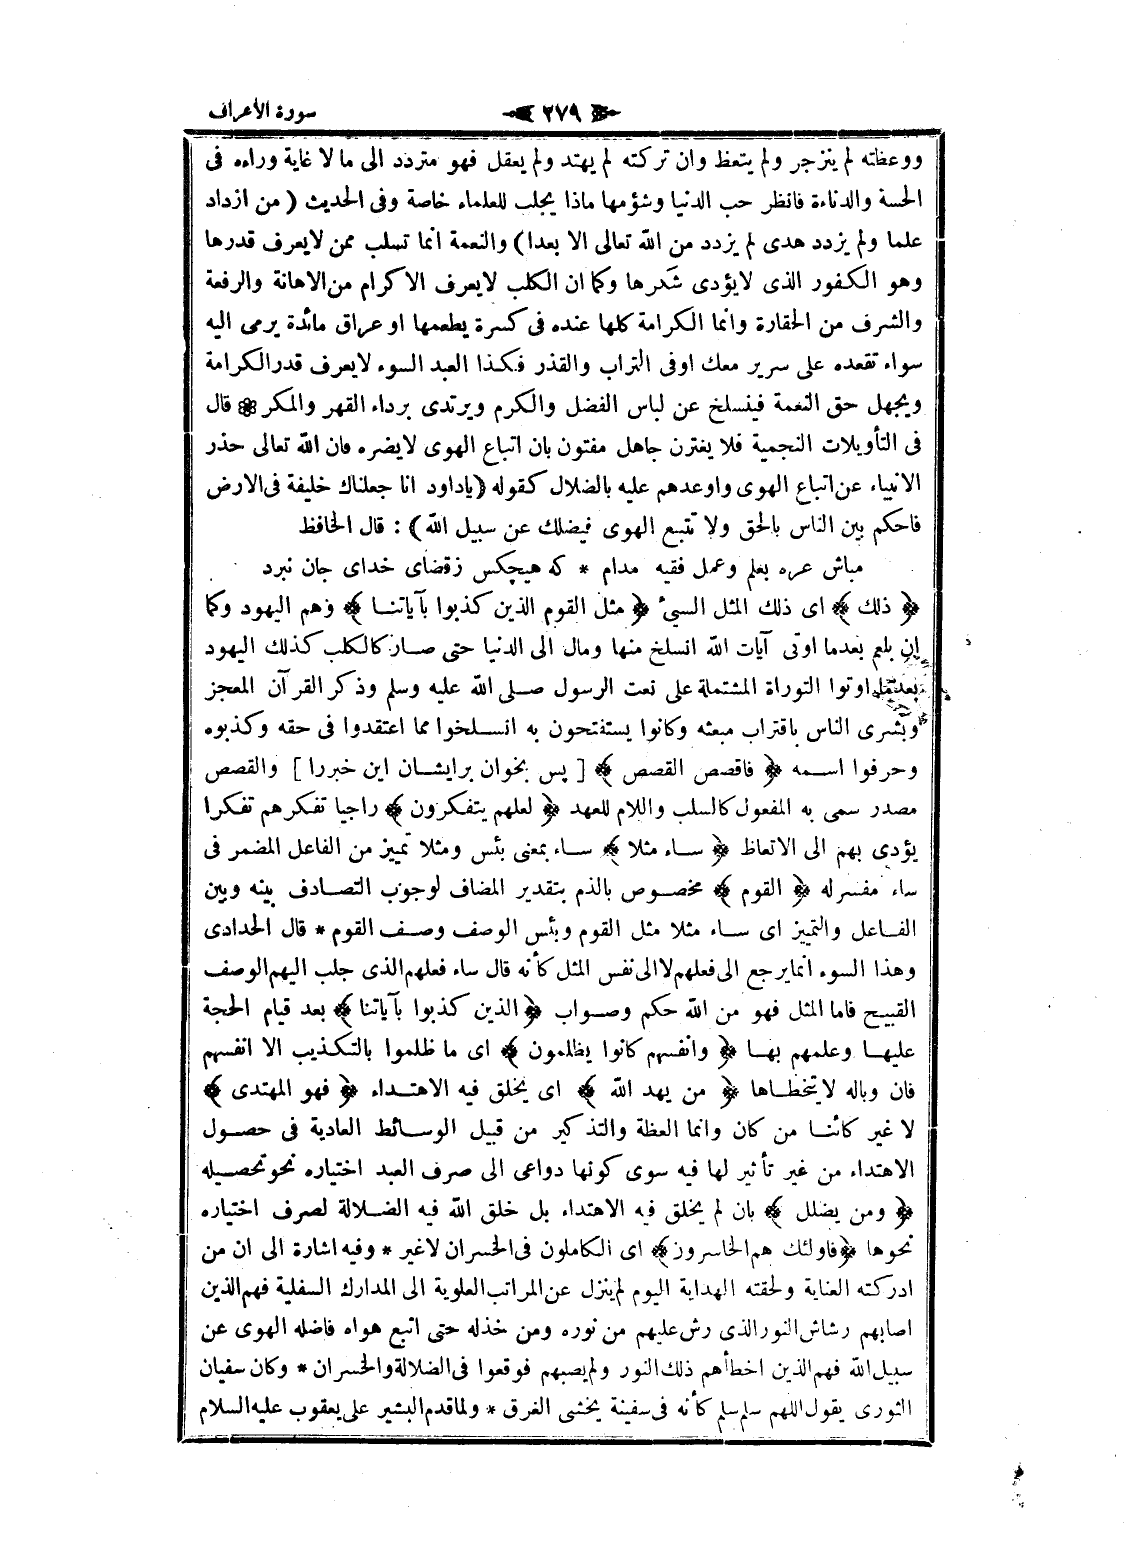 سورة الأعراف
٢٧٩
ووعظته لم ينزجر ولم يتعظ وان تركته لم يهتد ولم يعقل فهو متردد الى ما لا غاية وراءه فى
الخسة والدناءة فانظر حب الدنيا وشؤمها ماذا يجلب للعلماء خاصة وفى الحديث (من ازداد
علما ولم يزدد هدى لم يزدد من الله تعالى الا بعدا) والنعمة انما تسلب ممن لايعرف قدرها
وهو الكفور الذى لايؤدى شكرها وكما ان الكلب لايعرف الاكرام من الاهانة والرفعة
والشرف من الحقارة وانما الكرامة كلها عنده فى كسرة يطعمها او عراق مائدة يرمى اليه
سواء تقعده على سرير معك اوفى التراب والقذر فكذا العبد السوء لايعرف قدر الكرامة
ويجهل حق النعمة فينسلخ عن لباس الفضل والكرم ويرتدى برداء القهر والمكر ❁ قال
فى التأويلات النجمية فلا يغترن جاهل مفتون بان اتباع الهوى لايضره فان الله تعالى حذر
الانبياء عن اتباع الهوى واوعدهم عليه بالضلال كقوله (ياداود انا جعلناك خليفة فى الارض
فاحكم بين الناس بالحق ولا تتبع الهوى فيضلك عن سبيل الله) : قال الحافظ
مباش غره بعلم وعمل فقيه مدام * كه هيچكس زقضاى خداى جان نبرد
﴿ ذلك ﴾ اى ذلك المثل السيئ ﴿ مثل القوم الذين كذبوا بآياتنا ﴾ وهم اليهود وكما
ان بلعم بعدما اوتى آيات الله انسلخ منها ومال الى الدنيا حتى صار كالكلب كذلك اليهود
بعدما اوتوا التوراة المشتملة على نعت الرسول صلى الله عليه وسلم وذكر القرآن المعجز
وبشرى الناس باقتراب مبعثه وكانوا يستفتحون به انسلخوا مما اعتقدوا فى حقه وكذبوه
وحرفوا اسمه ﴿ فاقصص القصص ﴾ [ پس بخوان برايشان اين خبررا ] والقصص
مصدر سمى به المفعول كالسلب واللام للعهد ﴿ لعلهم يتفكرون ﴾ راجيا تفكرهم تفكرا
يؤدى بهم الى الاتعاظ ﴿ ساء مثلا ﴾ ساء بمعنى بئس ومثلا تمييز من الفاعل المضمر فى
ساء مفسرله ﴿ القوم ﴾ مخصوص بالذم بتقدير المضاف لوجوب التصادف بينه وبين
الفاعل والتمييز اى ساء مثلا مثل القوم وبئس الوصف وصف القوم * قال الحدادى
وهذا السوء انما يرجع الى فعلهم لا الى نفس المثل كأنه قال ساء فعلهم الذى جلب اليهم الوصف
القبيح فاما المثل فهو من الله حكم وصواب ﴿ الذين كذبوا بآياتنا ﴾ بعد قيام الحجة
عليها وعلمهم بها ﴿ وانفسهم كانوا يظلمون ﴾ اى ما ظلموا بالتكذيب الا انفسهم
فان وباله لا يتخطاها ﴿ من يهد الله ﴾ اى يخلق فيه الاهتداء ﴿ فهو المهتدى ﴾
لا غير كائنا من كان وانما العظة والتذكير من قبيل الوسائط العادية فى حصول
الاهتداء من غير تأثير لها فيه سوى كونها دواعى الى صرف العبد اختياره نحو تحصيله
﴿ ومن يضلل ﴾ بان لم يخلق فيه الاهتداء بل خلق الله فيه الضلالة لصرف اختياره
نحوها ﴿ فاولئك هم الخاسرون ﴾ اى الكاملون فى الخسران لاغير * وفيه اشارة الى ان من
ادركته العناية ولحقته الهداية اليوم لم ينزل عن المراتب العلوية الى المدارك السفلية فهم الذين
اصابهم رشاش النور الذى رش عليهم من نوره ومن خذله حتى اتبع هواه فاضله الهوى عن
سبيل الله فهم الذين اخطأهم ذلك النور ولم يصبهم فوقعوا فى الضلالة والخسران * وكان سفيان
الثورى يقول اللهم سلم سلم كأنه فى سفينة يخشى الغرق * ولما قدم البشير على يعقوب عليه السلام